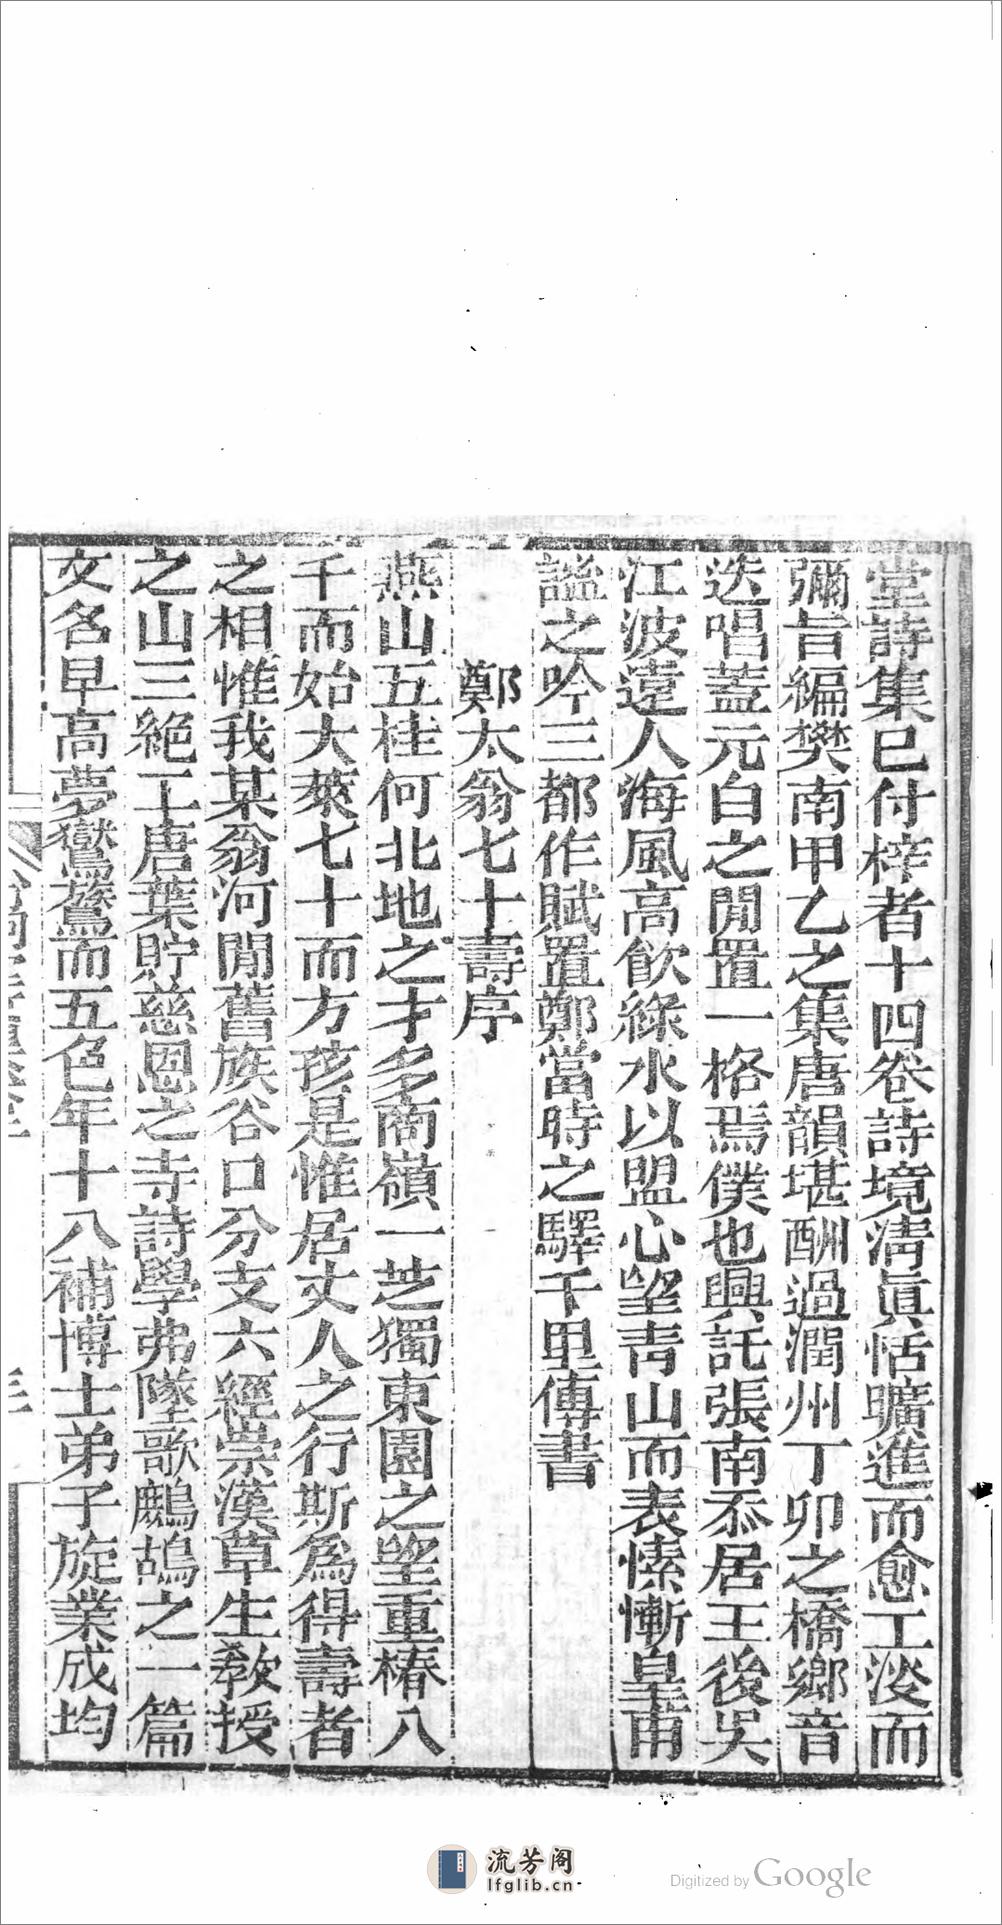 堂詩集已付梓者十四卷詩境淸眞恬曠進而愈工淡而
彌旨編樊南甲乙之集唐韻堪酬過潤州丁卯之橋鄉音
迭唱蓋元白之閒置一格焉僕也興託張南忝居王後吳
江波遠人海風高飮綠水以盟心望靑山而表愫慚皇甫
謐之吟三都作賦置鄭當時之驛千里傳書
鄭太翁七十壽序
燕山五桂何北地之才多商嶺一芝獨東園之望重椿八
千而始大萊七十而方孩是惟居丈人之行斯爲得壽者
之相惟我某翁河閒舊族谷口分支六經崇漢草生敎授
之山三絶工唐葉貯慈恩之寺詩學弗墜歌鷓鴣之一篇
文名早高夢鸑鷟而五色年十八補博士弟子旋業成均
流芳阁
lfglib.cn
Digitized by Google